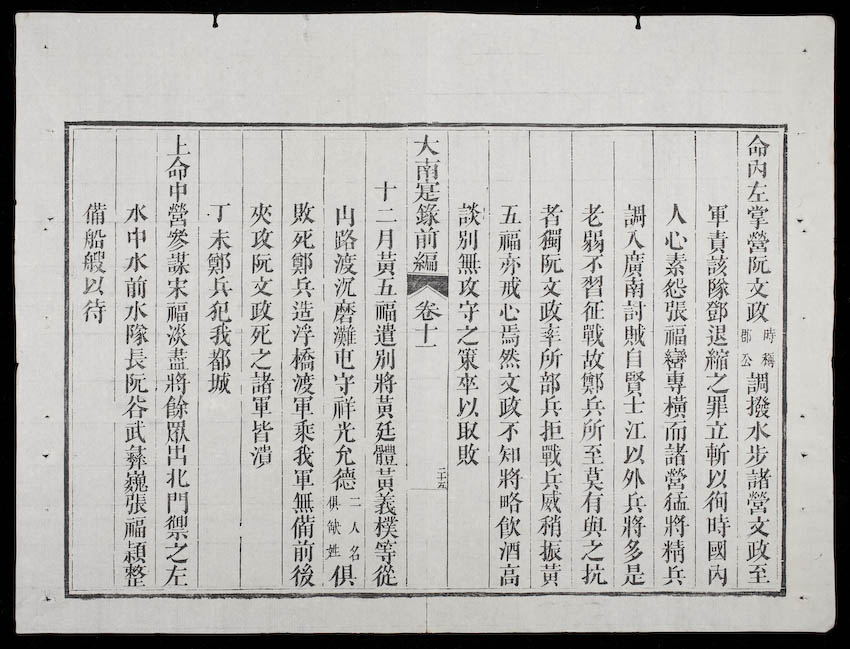 命內左掌營阮文政時稱郡公調撥水步諸營文政至
軍責該隊鄧退縮之罪立斬以徇時國內
人心素怨張福巒專橫而諸營猛將精兵
調入廣南討賊自賢士江以外兵將多是
老弱不習征戰故鄭兵所至莫有與之抗
者獨阮文政率所部兵拒戰兵威稍振黃
五福亦戒心焉然文政不知將略飲酒高
談別無攻守之策卒以取敗
大南寔錄前編 卷十一 二十五
十二月黃五福遣別將黃廷體黃義樸等從
山路渡沉磨灘屯守祥光允德二人名俱缺姓俱
敗死鄭兵造浮橋渡軍乘我軍無備前後
夾攻阮文政死之諸軍皆潰
丁未鄭兵犯我都城
上命中營參謀宋福淡盡將餘眾出北門禦之左
水中水前水隊長阮谷武彝巍張福穎整
備船艘以待